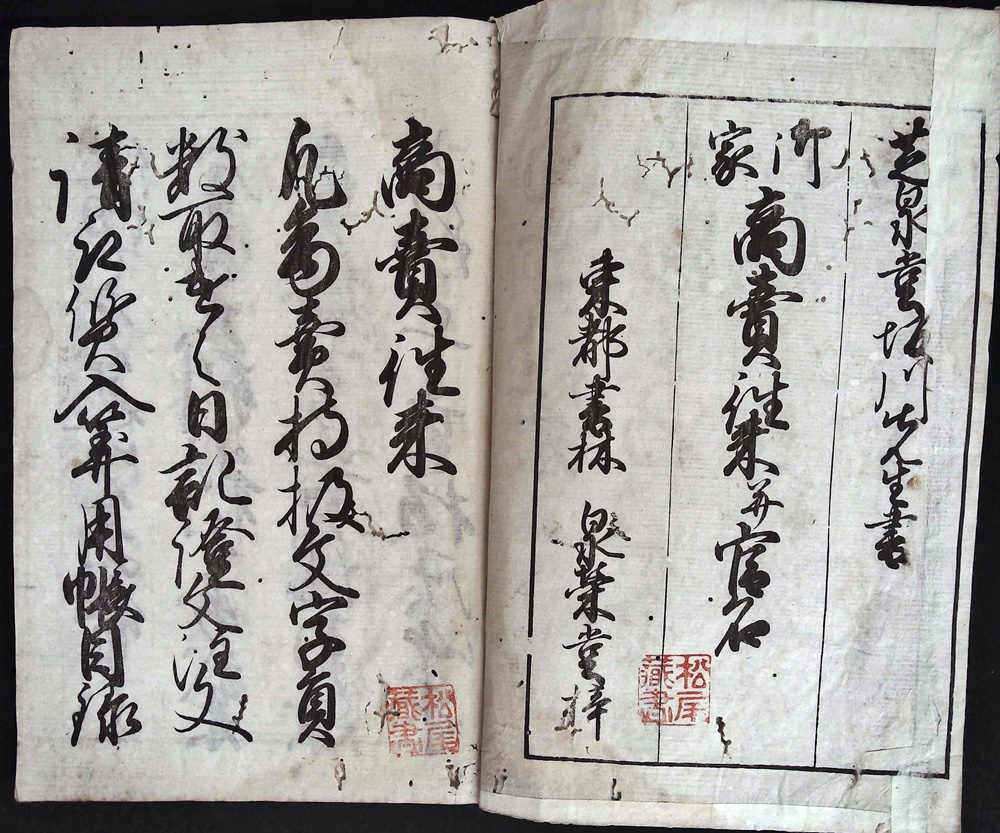 芝泉堂坂川先生書
御家
商賣往来并官名
東都書林 泉榮堂梓
松尾
藏書
商賣往来
凡商賣持扱文字員
数取遣之日記證文注文
請取質入算用帳目録
松尾
藏書